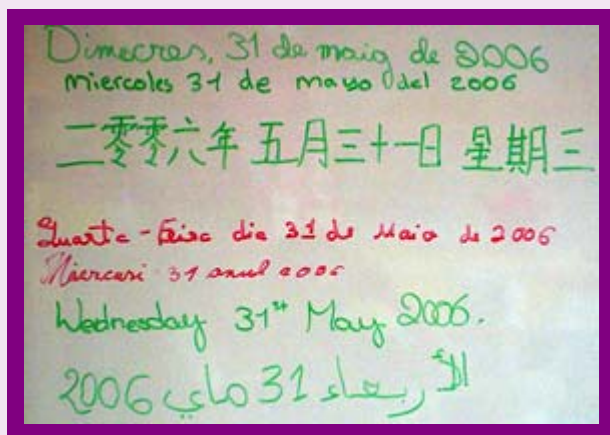 Dimecres, 31 de maig de 2006
miercoles 31 de mayo del 2006
二零零六年 五月三十一日 星期三
Quarta-feira dia 31 de Maio de 2006
Miercuri 31 anul 2006
Wednesday 31st May 2006.
الأربعاء 31 ماي 2006